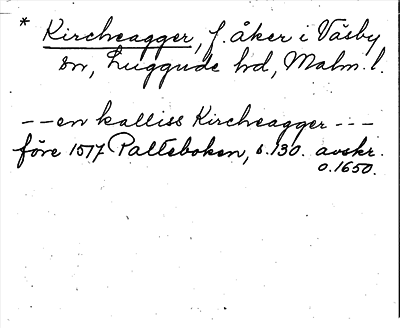 * Kircheagger, f. åker i Väsby
sn, Luggude hd, Malm. l.
--en kalliss Kircheagger---
före 1517 Palteboken, s. 130. avskr.
o. 1650.